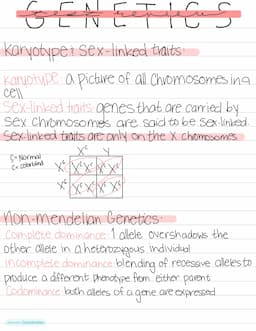 GENETICS
Karyotype & Sex-linked traits
Karyotype: a picture of all chromosomes in a
cell
Sex-linked traits: genes that are carried by
sex chromosomes are said to be sex-linked.
Sex-linked traits are only on the X chromosomes
Xᶜ Y
C = Normal
c = colorblind
Non-mendelian Genetics
Complete dominance: 1 allele overshadows the
other allele in a heterozygous individual
Incomplete dominance: blending of recessive alleles to
produce a different phenotype from either parent
Codominance: both alleles of a gene are expressed